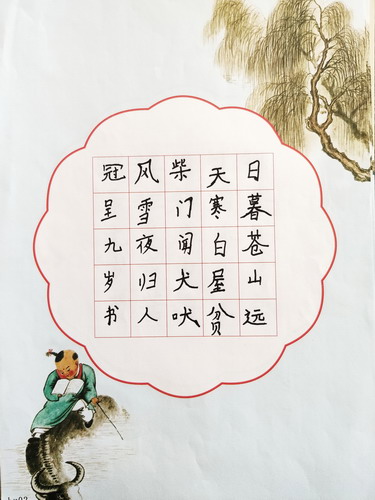 日暮苍山远
天寒白屋贫
柴门闻犬吠
风雪夜归人
冠呈九岁书